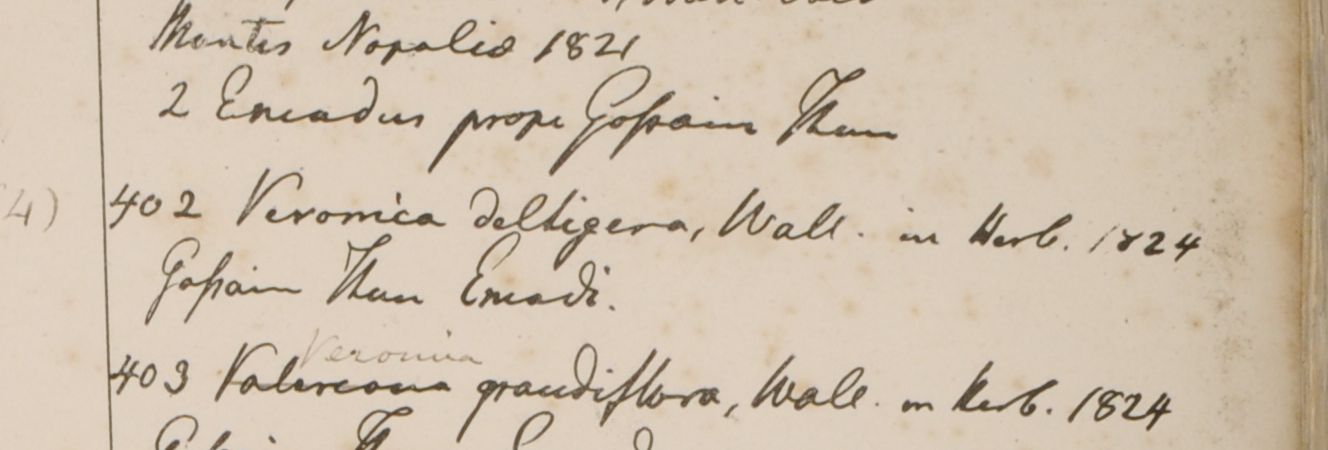 Montes Nopaliæ 1821
2 Emadus prope Goſsain Than
4)
402 Veronica deltigera, Wall. in Herb. 1824
Goſsain Than Emadi.
Veronica
403 Valereana grandiflora, Wall. in Herb. 1824